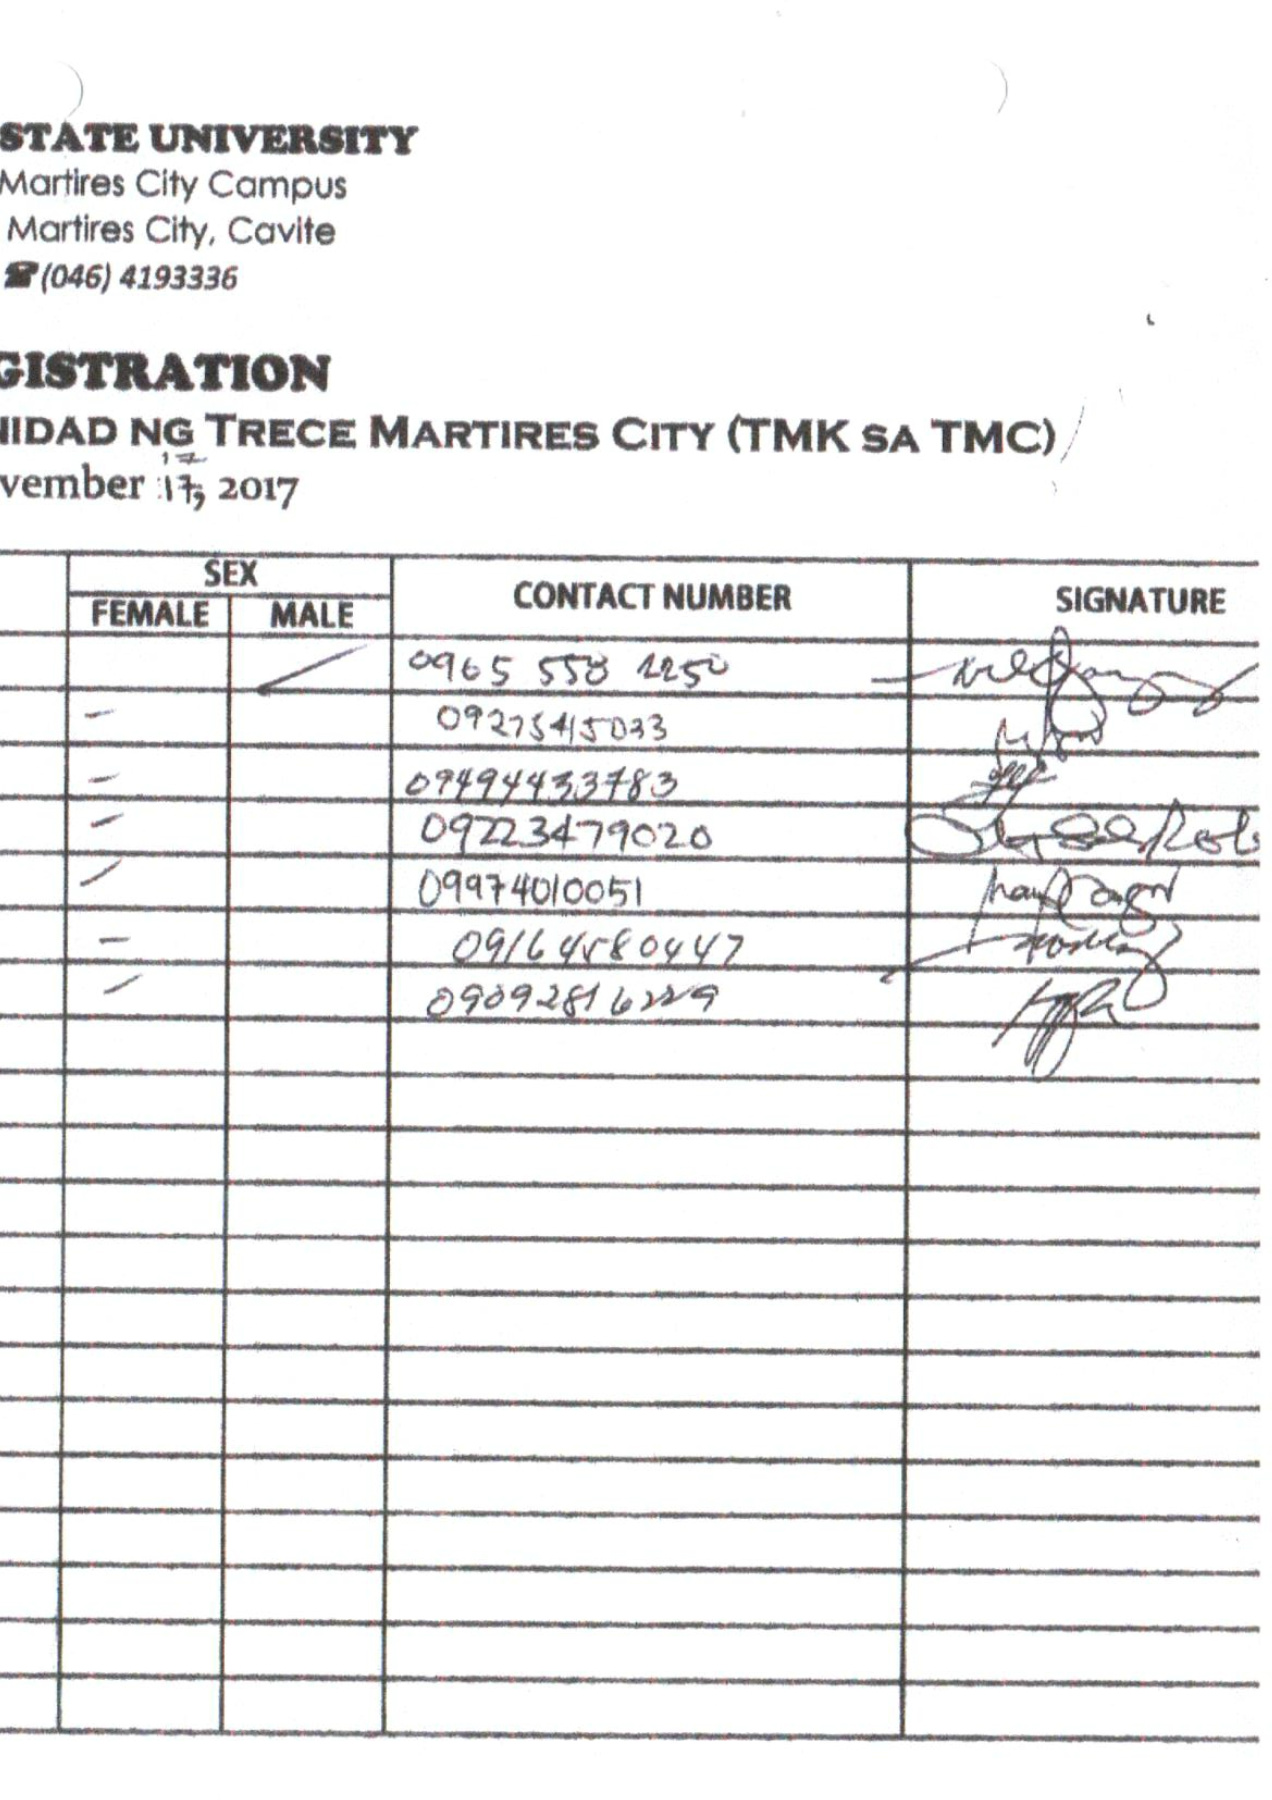 STATE UNIVERSITY
Martires City Campus
Martires City, Cavite
☎(046) 4193336
GISTRATION
NIDAD NG TRECE MARTIRES CITY (TMK SA TMC)
17
vember 17, 2017
SEX
CONTACT NUMBER
SIGNATURE
FEMALE MALE
0965 558 2250
09275415033
09494433783
09223479020
09974010051
09164580447
09092816229